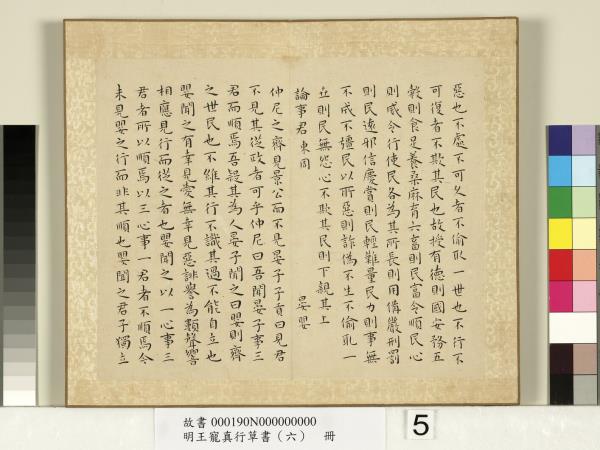 惡也不處不可久者不偷取一世也不行不
可復者不欺其民也故授有德則國安務五
穀則食足養桑麻育六畜則民富令順民心
則威令行使民各為其所長則用備嚴刑罰
則民遠邪信慶賞則民輕難量民力則事無
不成不彊民以所惡則詐偽不生不偷取一
立則民無怨心不欺其民則下親其上
論事君 東周 晏嬰
仲尼之齊見景公而不見晏子子貢曰見君
不見其從政者可乎仲尼曰吾聞晏子事三
君而順焉吾疑其為人晏子聞之曰嬰則齊
之世民也不維其行不識其過不能自立也
嬰聞之有幸見愛無幸見惡誹譽為類聲響
相應見行而從之者也嬰聞之以一心事三
君者所以順焉以三心事一君者不順焉今
未見嬰之行而非其順也嬰聞之君子獨立
故書 000190N000000000
明王寵真行草書(六) 冊
5